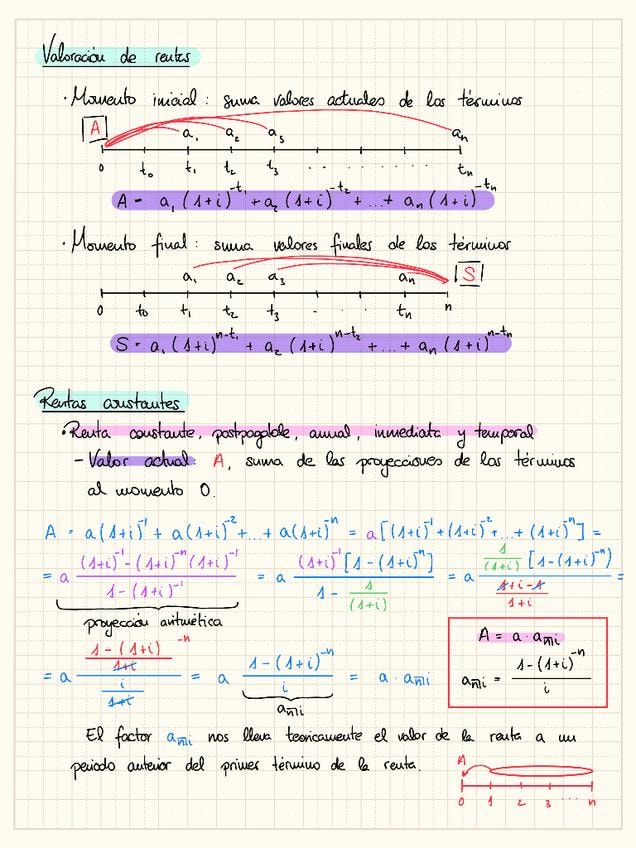 Valoración de rentas
· Momento inicial: suma valores actuales de los términos
A a₁ a₂ a₃ aₙ
0 t₀ t₁ t₂ t₃ . . . . . . . . tₙ
A = a₁ (1+i)^-t₁ + a₂ (1+i)^-t₂ + ... + aₙ (1+i)^-tₙ
· Momento final: suma valores finales de los términos
a₁ a₂ a₃ aₙ S
0 t₀ t₁ t₂ t₃ . . . tₙ n
S = a₁ (1+i)^n-t₁ + a₂ (1+i)^n-t₂ + ... + aₙ (1+i)^n-tₙ
Rentas constantes
· Renta constante, postpagable, anual, inmediata y temporal
- Valor actual: A, suma de las proyecciones de los términos
al momento 0.
A = a(1+i)^-1 + a(1+i)^-2 + ... + a(1+i)^-n = a[(1+i)^-1 + (1+i)^-2 + ... + (1+i)^-n] =
= a ((1+i)^-1 - (1+i)^-n (1+i)^-1) / (1-(1+i)^-1) = a ((1+i)^-1 [1-(1+i)^-n]) / (1 - 1/(1+i)) = a (1/(1+i) [1-(1+i)^-n]) / ((1+i-1)/(1+i)) =
proyección aritmética
= a ((1-(1+i)^-n)/(1+i)) / (i/(1+i)) = a (1-(1+i)^-n)/i = a · a n̅ i
a n̅ i
A = a · a n̅ i
a n̅ i = (1-(1+i)^-n)/i
El factor a n̅ i nos lleva teoricamente el valor de la renta a un
periodo anterior del primer término de la renta.
A
0 1 2 3 ... n